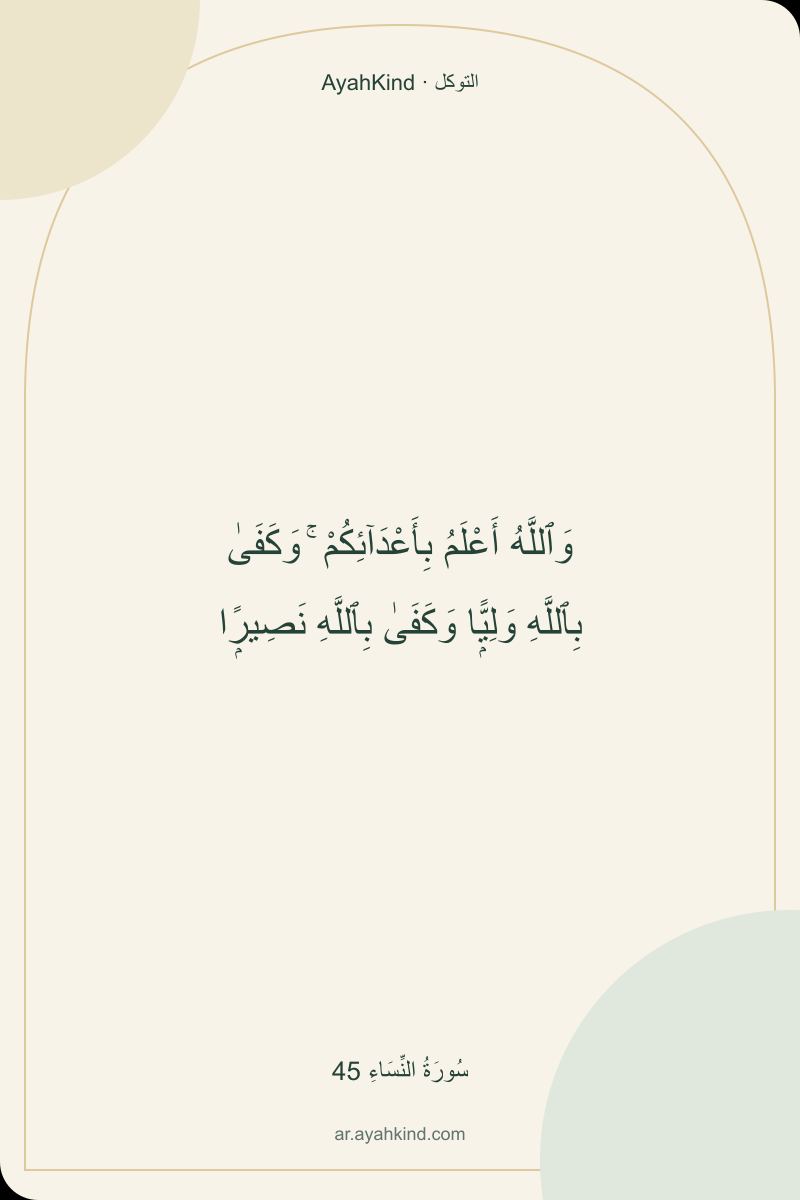 التوكل · AyahKind
وَٱللَّهُ أَعْلَمُ بِأَعْدَآئِكُمْ ۚ وَكَفَىٰ
بِٱللَّهِ وَلِيًّۭا وَكَفَىٰ بِٱللَّهِ نَصِيرًۭا
سُورَةُ النِّسَاءِ 45
ar.ayahkind.com